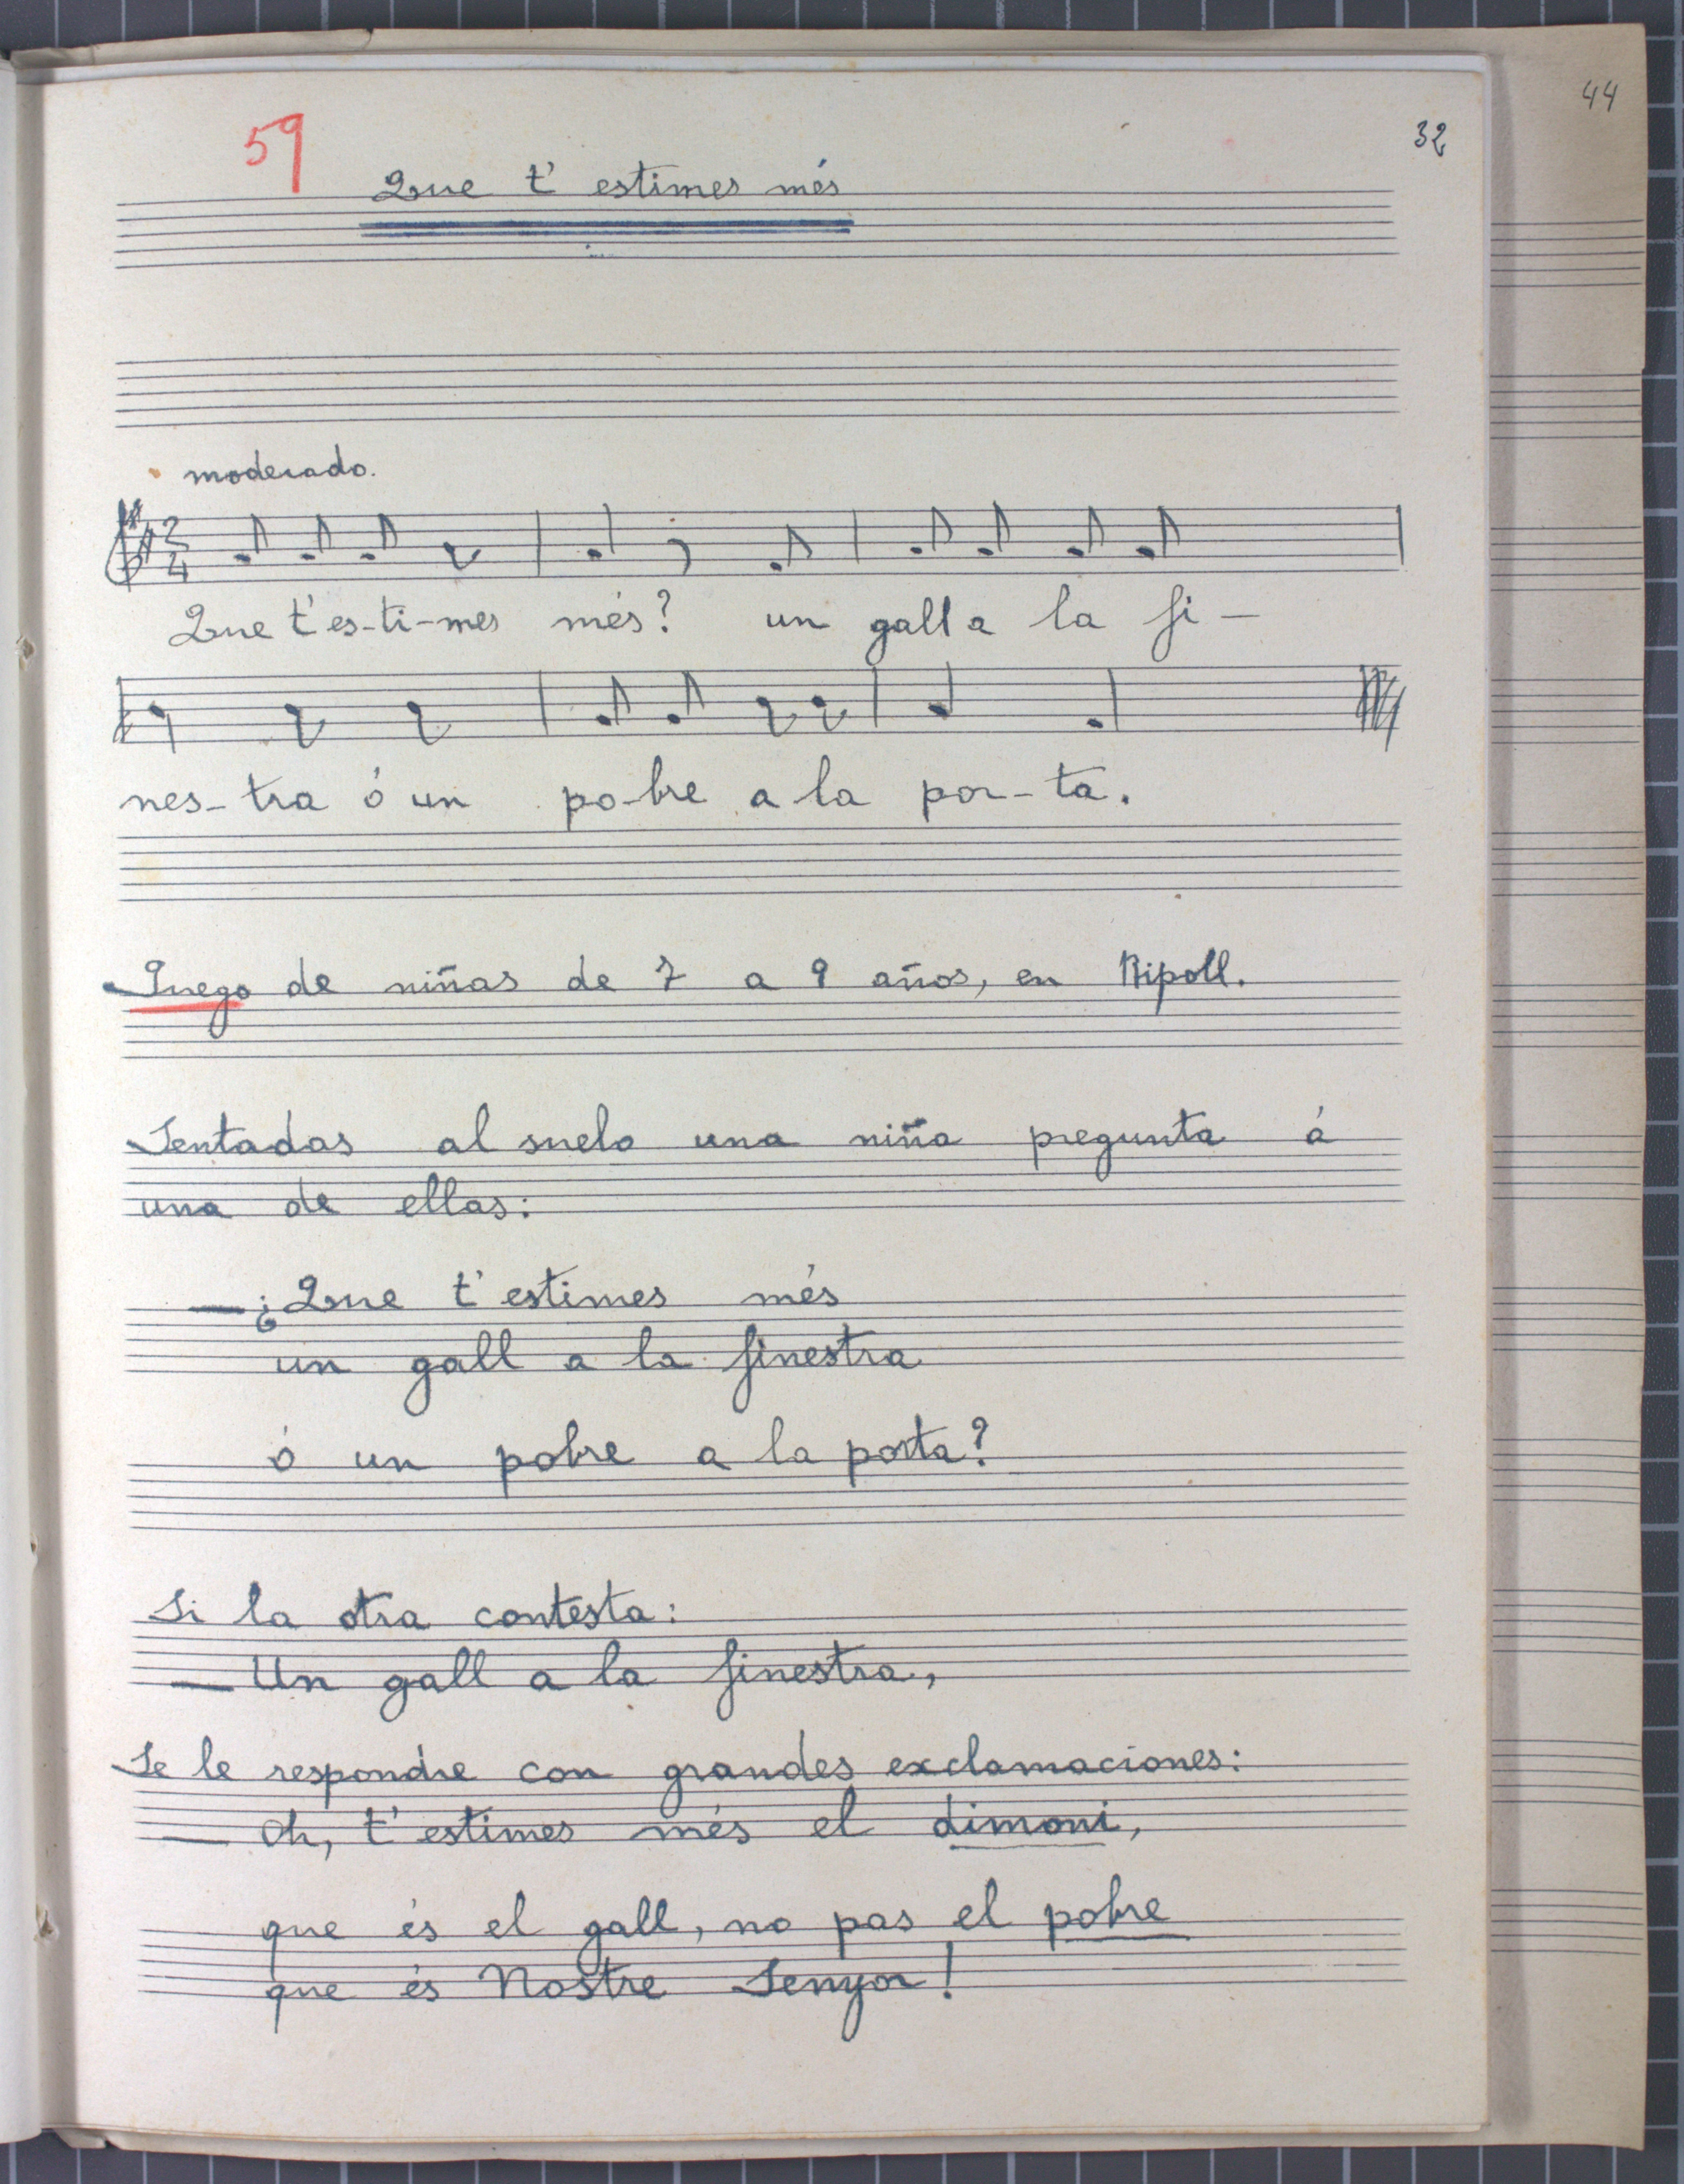 44
32
59
Que t' estimes més
moderado.
2/4
Que t'es-ti-mes més? un gall a la fi-
nes-tra ó un po-bre a la por-ta.
Juego de niñas de 7 a 9 años, en Ripoll.
Sentadas al suelo una niña pregunta á
una de ellas:
— ¿Que t' estimes més
un gall a la finestra
ó un pobre a la porta?
Si la otra contesta:
— Un gall a la finestra,
Se le respondre con grandes exclamaciones:
— Oh, t' estimes més el dimoni,
que és el gall, no pas el pobre
que és Nostre Senyor!